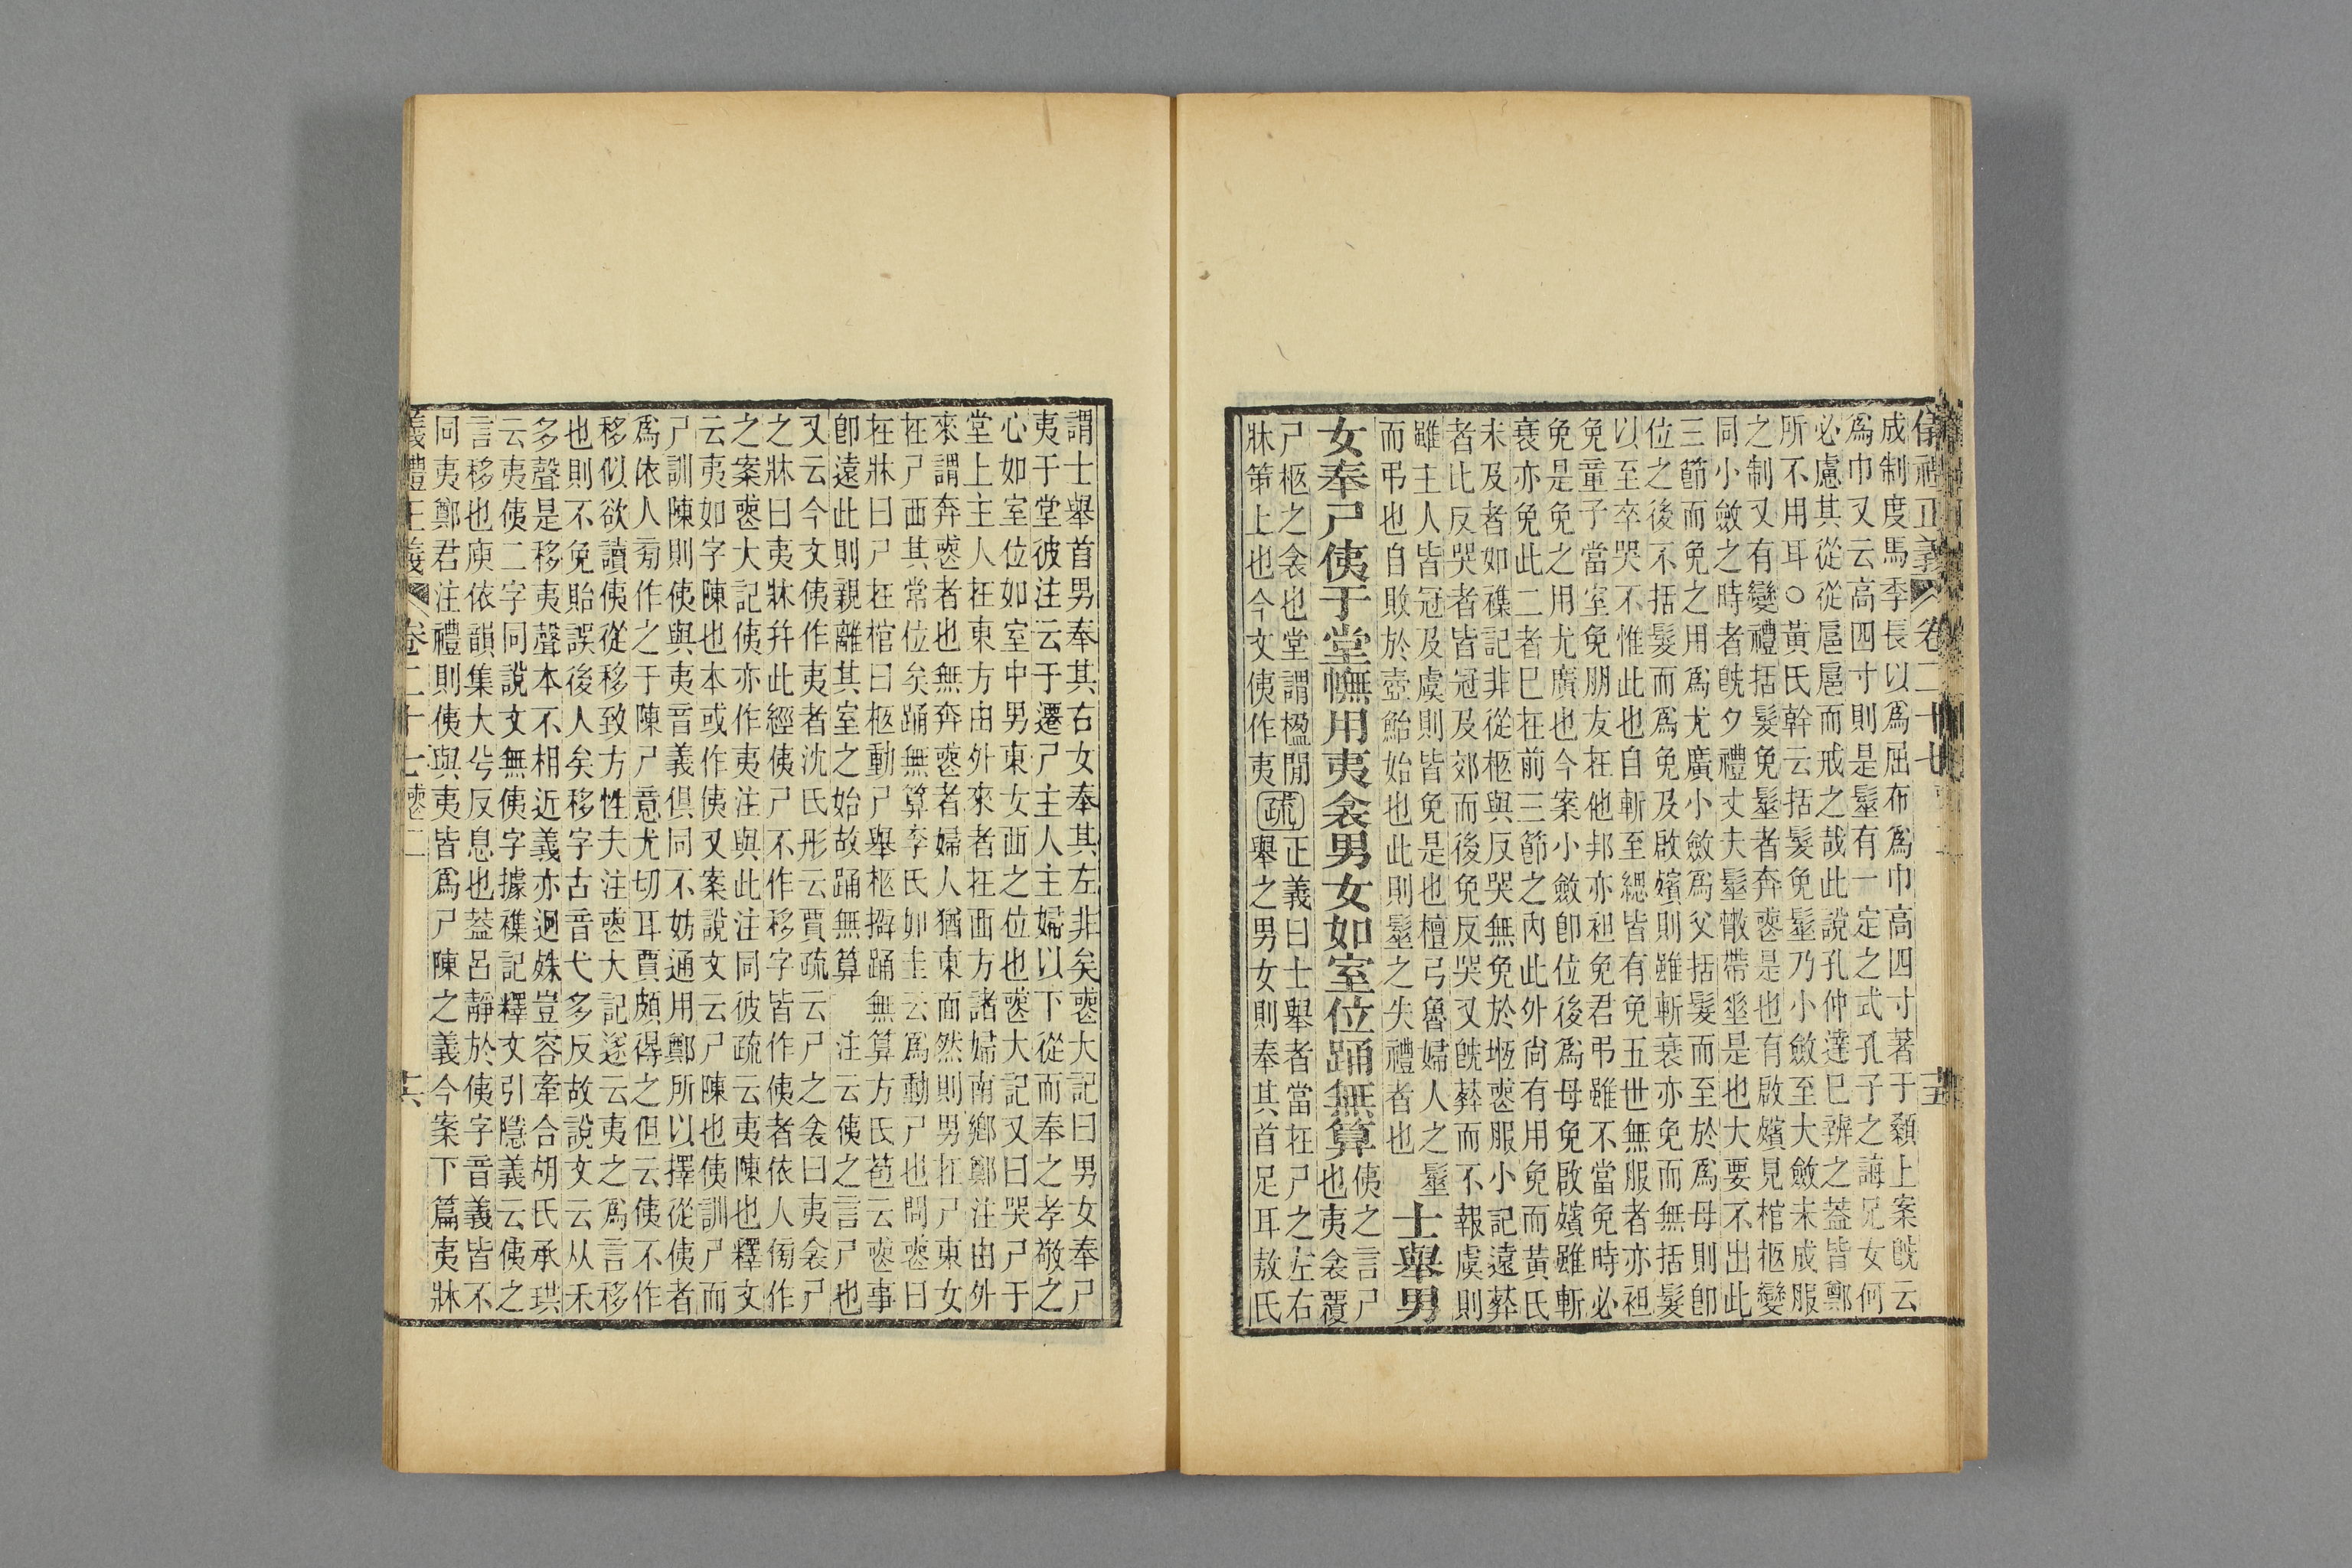 儀禮正義 卷二十七 十五
成制度馬季長以爲屈布爲巾高四寸著于顙上案旣云
爲巾又云高四寸則是髽有一定之式孔子之誨兄女何
必慮其從從扈扈而戒之哉此說孔仲達已辨之蓋皆鄭
所不用耳○黃氏幹云括髮免髽乃小斂至大斂未成服
之制又有變禮括髮免髽者奔喪是也有啟殯見棺柩變
同小斂之時者旣夕禮丈夫髽散帶垂是也大要不出此
三節而免之用爲尤廣小斂爲父括髮而至於爲母則卽
位之後不括髮而爲免及啟殯則雖斬衰亦免而無括髮
以至卒哭不惟此也自斬至緦皆有免五世無服者亦袒
免童子當室免朋友在他邦亦袒免君弔雖不當免時必
免是免之用尤廣也今案小斂卽位後爲母免啟殯雖斬
衰亦免此二者已在前三節之內此外尙有用免而黃氏
未及者如襍記非從柩與反哭無免於堩喪服小記遠葬
者比反哭者皆冠及郊而後免反哭又旣葬而不報虞則
雖主人皆冠及虞則皆免是也檀弓魯婦人之髽
而弔也自敗於壺鮐始也此則髽之失禮者也
士舉男
女奉尸侇于堂幠用夷衾男女如室位踊無算
侇之言尸
也夷衾覆
尸柩之衾也堂謂楹閒
牀第上也今文侇作夷
疏
正義曰士舉者當在尸之左右
舉之男女則奉其首足耳敖氏
謂士舉首男奉其右女奉其左非矣喪大記曰男女奉尸
夷于堂彼注云于遷尸主人主婦以下從而奉之孝敬之
心如室位如室中男東女西之位也喪大記又曰哭尸于
堂上主人在東方由外來者在西方諸婦南鄕鄭注由外
來謂奔喪者也無奔喪者婦人猶東面然則男在尸東女
在尸西其常位矣踊無算李氏如圭云爲動尸也問喪曰
在牀曰尸在棺曰柩動尸舉柩擗踊無算方氏苞云喪事
卽遠此則親離其室之始故踊無算 注云侇之言尸也
又云今文侇作夷者沈氏彤云賈疏云尸之衾曰夷衾尸
之牀曰夷牀幷此經侇尸不作移字皆作侇者依人傍作
之案喪大記侇亦作夷注與此注同彼疏云夷陳也釋文
云夷如字陳也本或作侇又案說文云尸陳也侇訓尸而
尸訓陳則侇與夷音義俱同不妨通用鄭所以擇從侇者
爲依人旁作之于陳尸意尤切耳賈頗得之但云侇不作
移似欲讀侇從移致方性夫注喪大記遂云夷之爲言移
也則不免貽誤後人矣移字古音弋多反故說文云从禾
多聲是移夷聲本不相近義亦迥殊豈容牽合胡氏承珙
云夷侇二字同說文無侇字據襍記釋文引隱義云侇之
言移也庾依韻集大兮反息也蓋呂靜於侇字音義皆不
同夷鄭君注禮則侇與夷皆爲尸陳之義今案下篇夷牀
義禮正義 卷二十七 喪二 十六